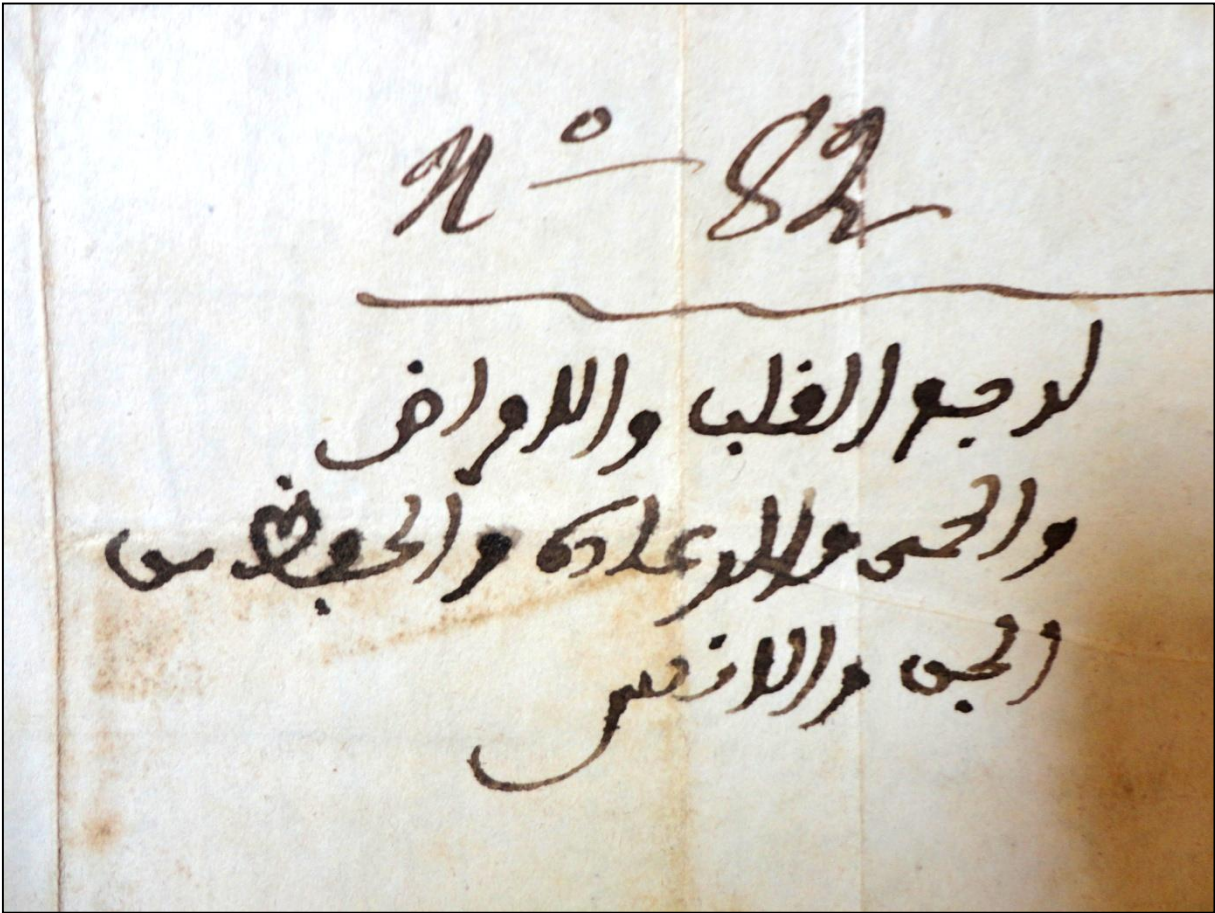 N° 82
لوجع القلب والامراض
والحمى والحفظ من
الجن والانس